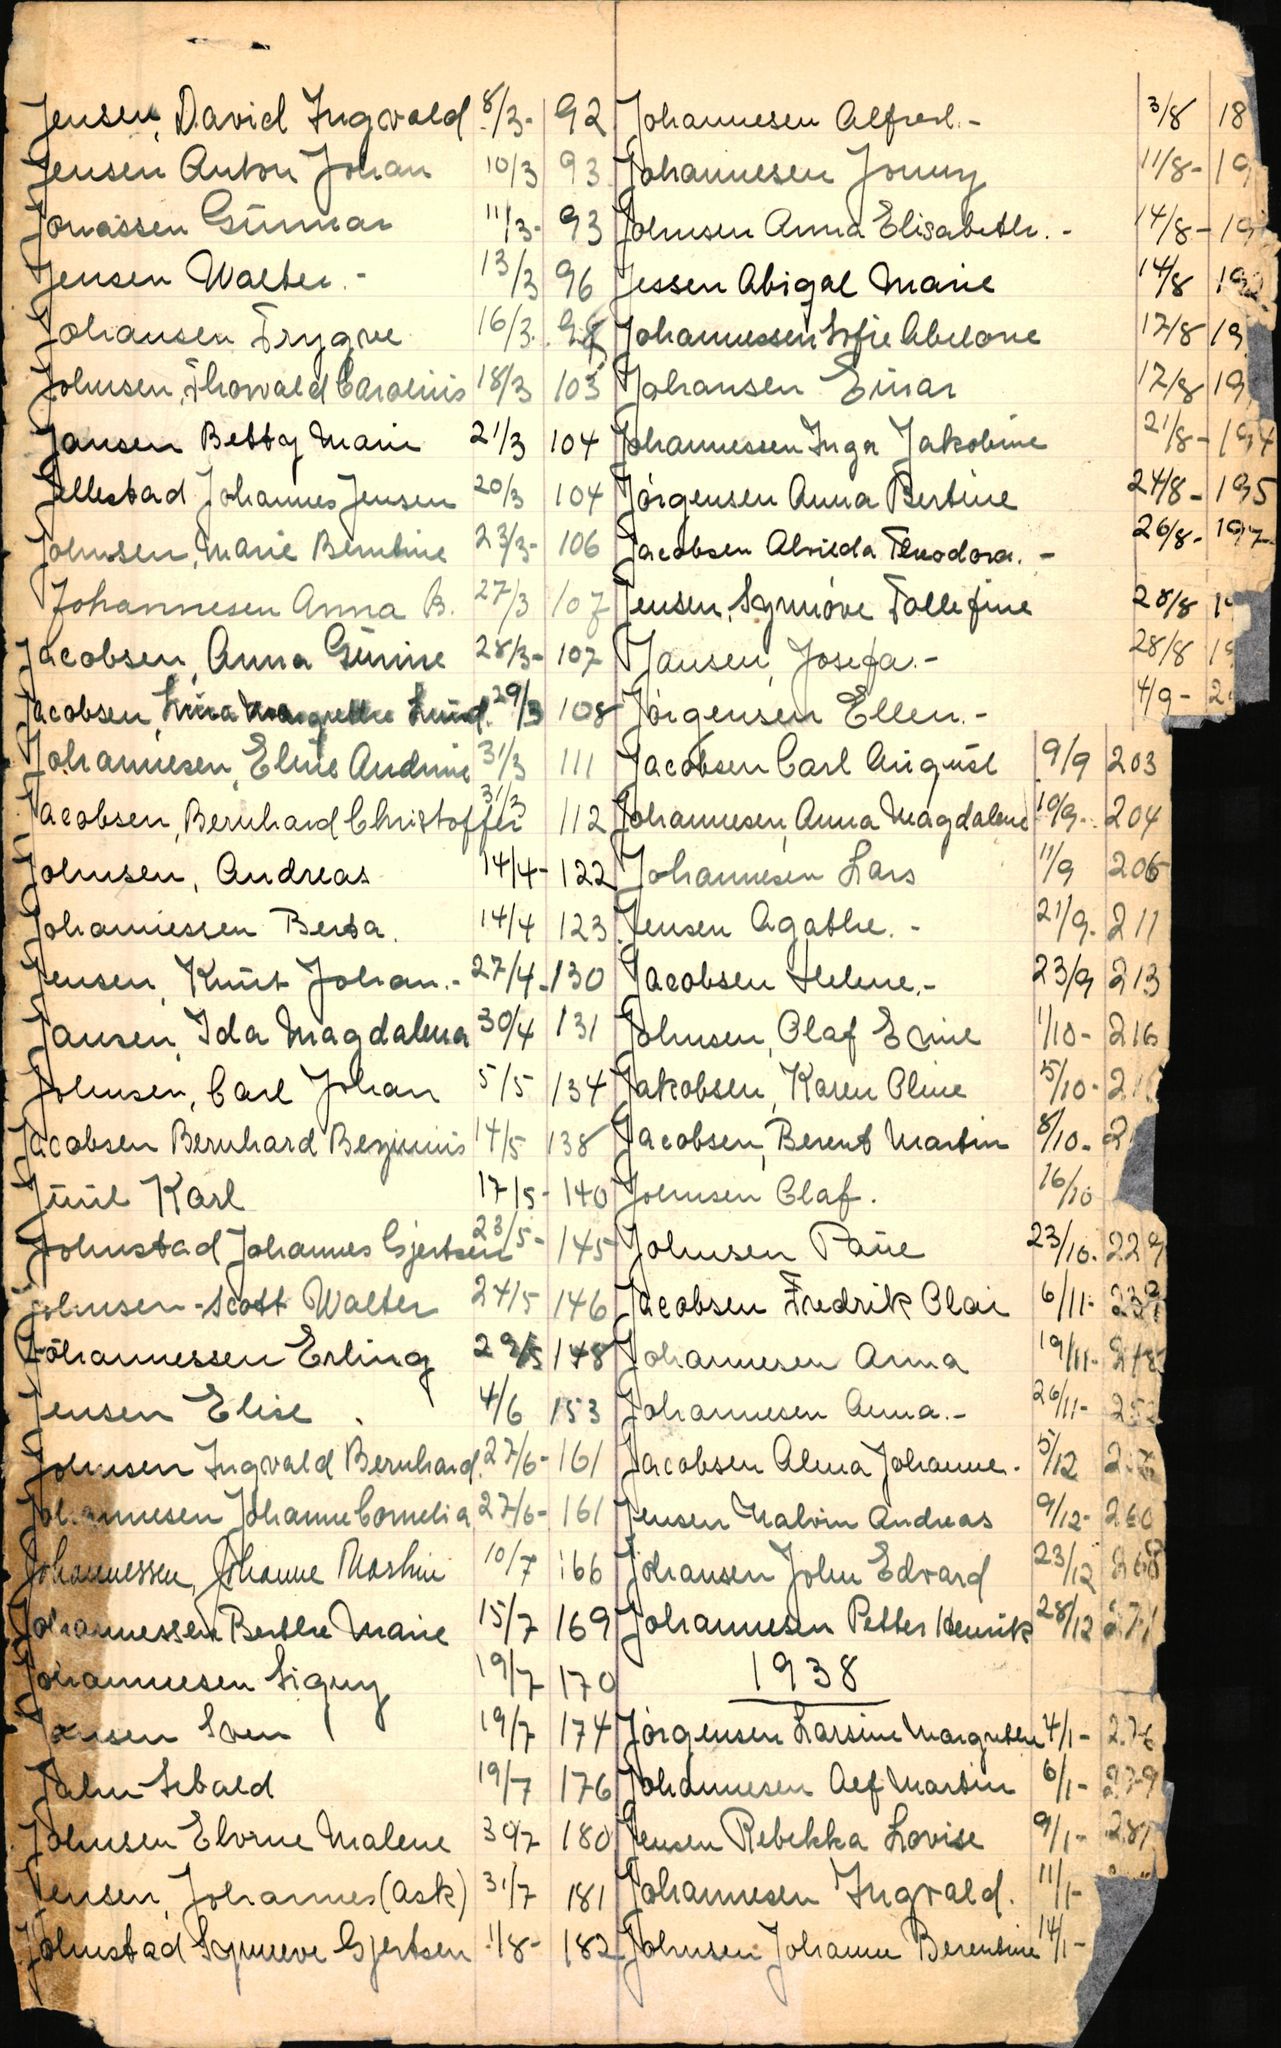 Jensen, David Ingvald 8/3- 92
Jensen Anton Johan 10/3 93
Jonassen Gunnar 11/3- 93
Jensen Walter.- 13/3 96
Johansen Trygve 16/3. 98
Johnsen, Thorvald Carolius 18/3 103
Jansen Betty Marie 21/3 104
Jellestad Johannes Jensen 20/3 104
Johnsen, Marie Berntine 23/3- 106
Johannesen Anna B. 27/3 107
Jacobsen, Anna Gurine 28/3- 107
Jacobsen, Lina Margrethe Lund. 29/3 108
Johannesen, Eline Andrine 31/3 111
Jacobsen, Bernhard Christoffer 31/3 112
Johnsen, Andreas 14/4- 122
Johannessen Berta. 14/4 123
Jensen, Knut Johan.- 27/4- 130
Jansen, Ida Magdalena 30/4 131
Johnsen, Carl Johan 5/5 134
Jacobsen Bernhard Benjamin 14/5 138
Juul Karl 17/5- 140
Johnstad Johannes Gjertsen 23/5- 145
Johnsen-Scott Walter 24/5 146
Johannessen Erling 29/5 148
Jensen Elise 4/6 153
Johnsen Ingvald Bernhard. 27/6- 161
Johannesen Johanne Cornelia 27/6- 161
Johannessen, Johanne Mathie 10/7 166
Johannessen Berthe Marie 15/7 169
Johannesen Signy 19/7 170
Jensen Sven 19/7 174
Jahn Sebald 19/7 176
Johnsen Elvine Malene 30/7 180
Jensen, Johannes (Ask) 31/7 181
Johnstad Synneve Gjertsen 1/8- 182
Johannesen Alfred.- 3/8 18
Johannesen Jonny 11/8- 19
Johnsen Anna Elisabeth.- 14/8- 19
Jessen Abigal Marie 14/8 192
Johannessen Sofie Abelone 17/8 19
Johansen Einar 17/8 19
Johannessen Inga Jakobine 21/8- 194
Jörgensen Anna Bertine 24/8- 195
Jacobsen Alvilda Theodora.- 26/8- 197
Jensen, Synnöve Tollefine 28/8 19
Jansen, Josefa.- 28/8 19
Jörgensen Ellen.- 4/9- 2
Jacobsen Carl August 9/9 203
Johannesen, Anna Magdalene 10/9- 204
Johannesen Lars 11/9 206
Jensen Agathe.- 21/9. 211
Jacobsen Helene.- 23/9 213
Johnsen, Olaf Emil 1/10- 216
Jakobsen, Karen Oline 5/10- 21
Jacobsen, Berent Martin 8/10- 2
Johnsen Olaf. 16/10
Johnsen Paue 23/10. 229
Jacobsen Fredrik Olai 6/11- 239
Johannesen Anna 19/11- 248
Johannesen Anna.- 26/11- 252
Jacobsen Alma Johanne. 5/12
Jensen Malvin Andreas 9/12- 260
Johansen John Edvard 23/12 268
Johannesen Petter Henrik 28/12 271
1938
Jörgensen Larsine Margrethe 4/1- 276
Johannesen Alf Martin 6/1- 279
Jensen Rebekka Lovise 9/1- 281
Johannesen Ingvald. 11/1-
Johnsen Johanne Berentine 14/1-